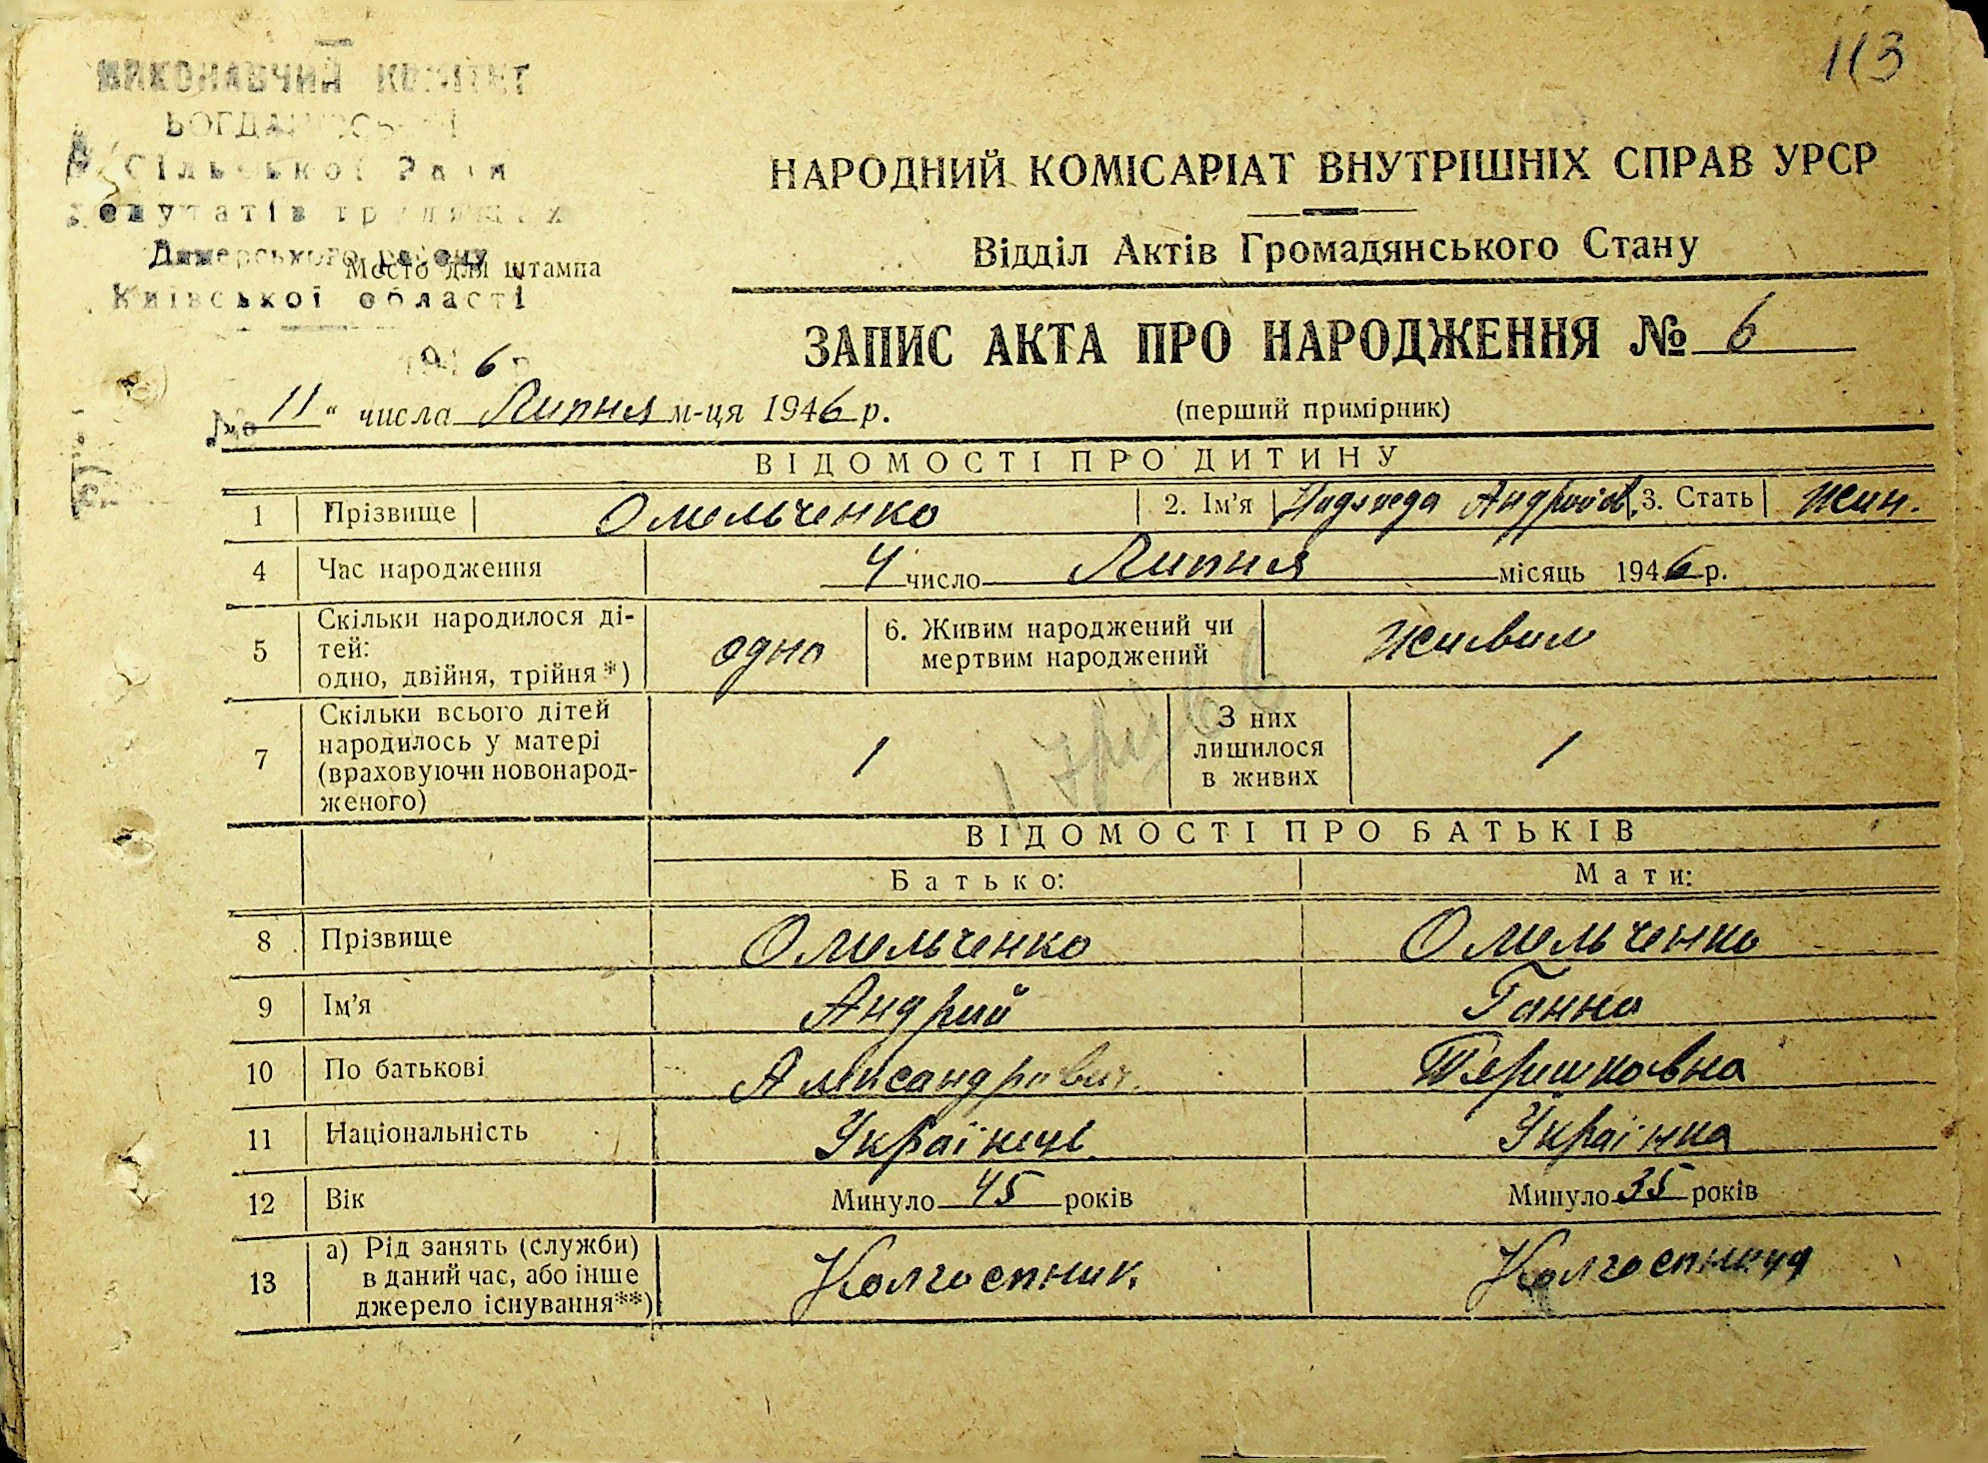 113
ВИКОНАВЧИЙ КОМІТЕТ
Сільської Ради
депутатів трудящих
Димерського району
Київської області
Место для штампа
1946 р.
№
НАРОДНИЙ КОМІСАРІАТ ВНУТРІШНІХ СПРАВ УРСР
Відділ Актів Громадянського Стану
ЗАПИС АКТА ПРО НАРОДЖЕННЯ № 6
11 " числа Липня м-ця 1946 р.
(перший примірник)
ВІДОМОСТІ ПРО ДИТИНУ
1 Прізвище Омельченко 2. Ім'я Надежда Андрійов. 3. Стать жин.
4 Час народження 4 число Липня місяць 1946 р.
5 Скільки народилося ді-
тей:
одно, двійня, трійня*) одно 6. Живим народжений чи
мертвим народжений живим
7 Скільки всього дітей
народилось у матері
(враховуючи новонарод-
женого) 1 З них
лишилося
в живих 1
ВІДОМОСТІ ПРО БАТЬКІВ
Батько: Мати:
8 Прізвище Омельченко Омельченко
9 Ім'я Андрий Ганна
10 По батькові Александрович Терешковна
11 Національність Українець Українка
12 Вік Минуло 45 років Минуло 35 років
13 а) Рід занять (служби)
в даний час, або інше
джерело існування**) Колгоспник Колгоспниця